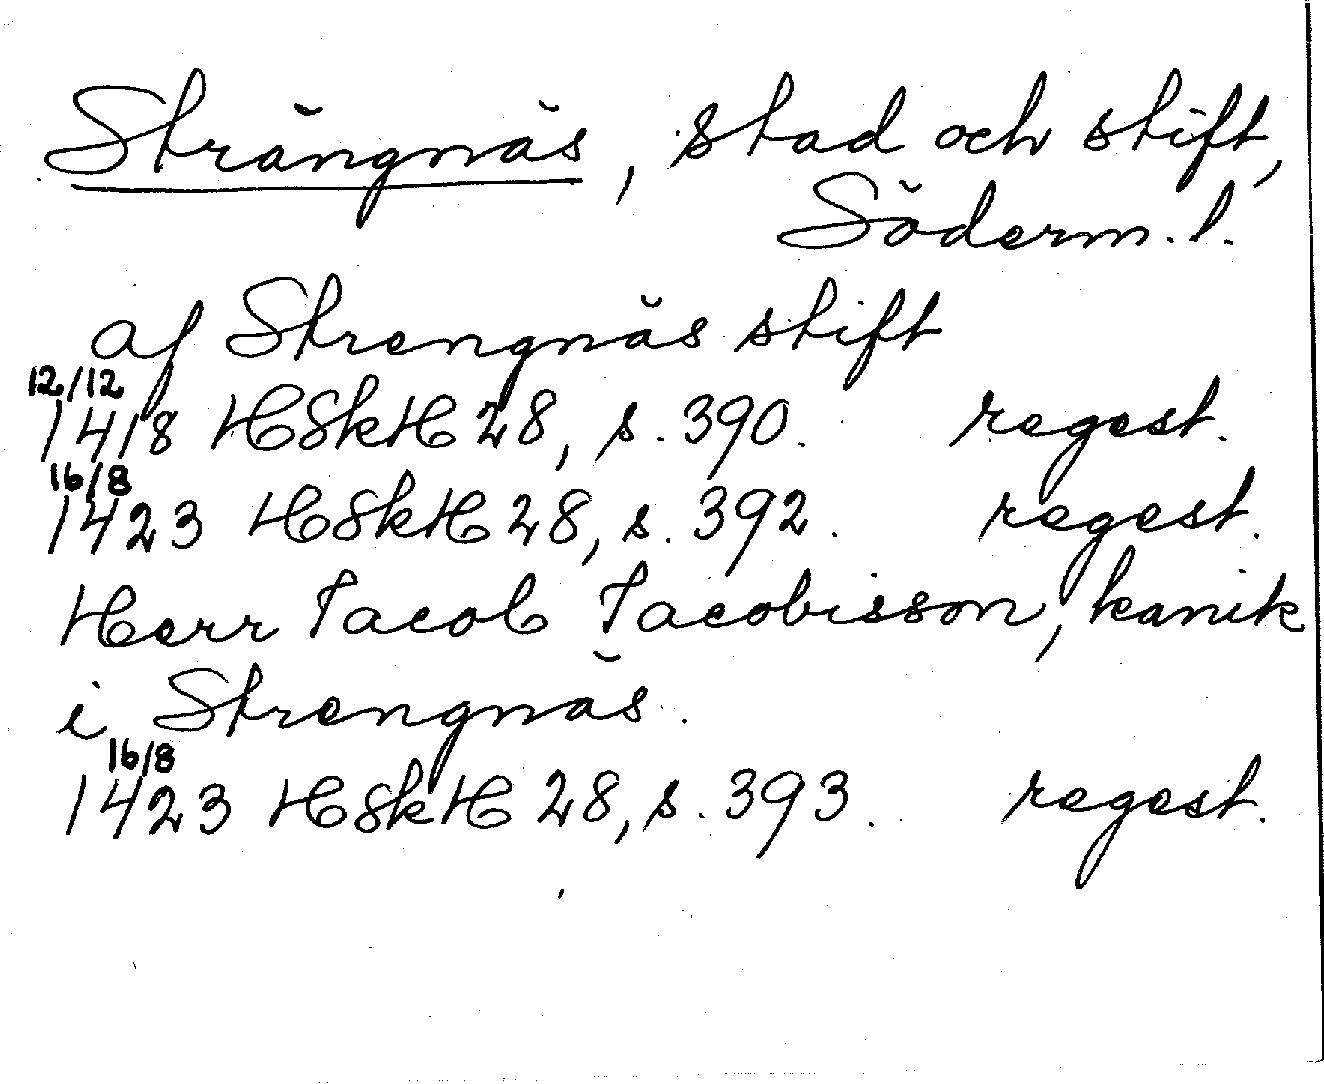 Strängnäs, stad och stift,
Söderm. l.
af Strengnäs stift
12/12
1418 HSkH 28, s. 390. regest.
16/8
1423 HSkH 28, s. 392. regest.
Herr Jacob Jacobisson, kanik
i Strengnäs.
16/8
1423 HSkH 28, s. 393. regest.